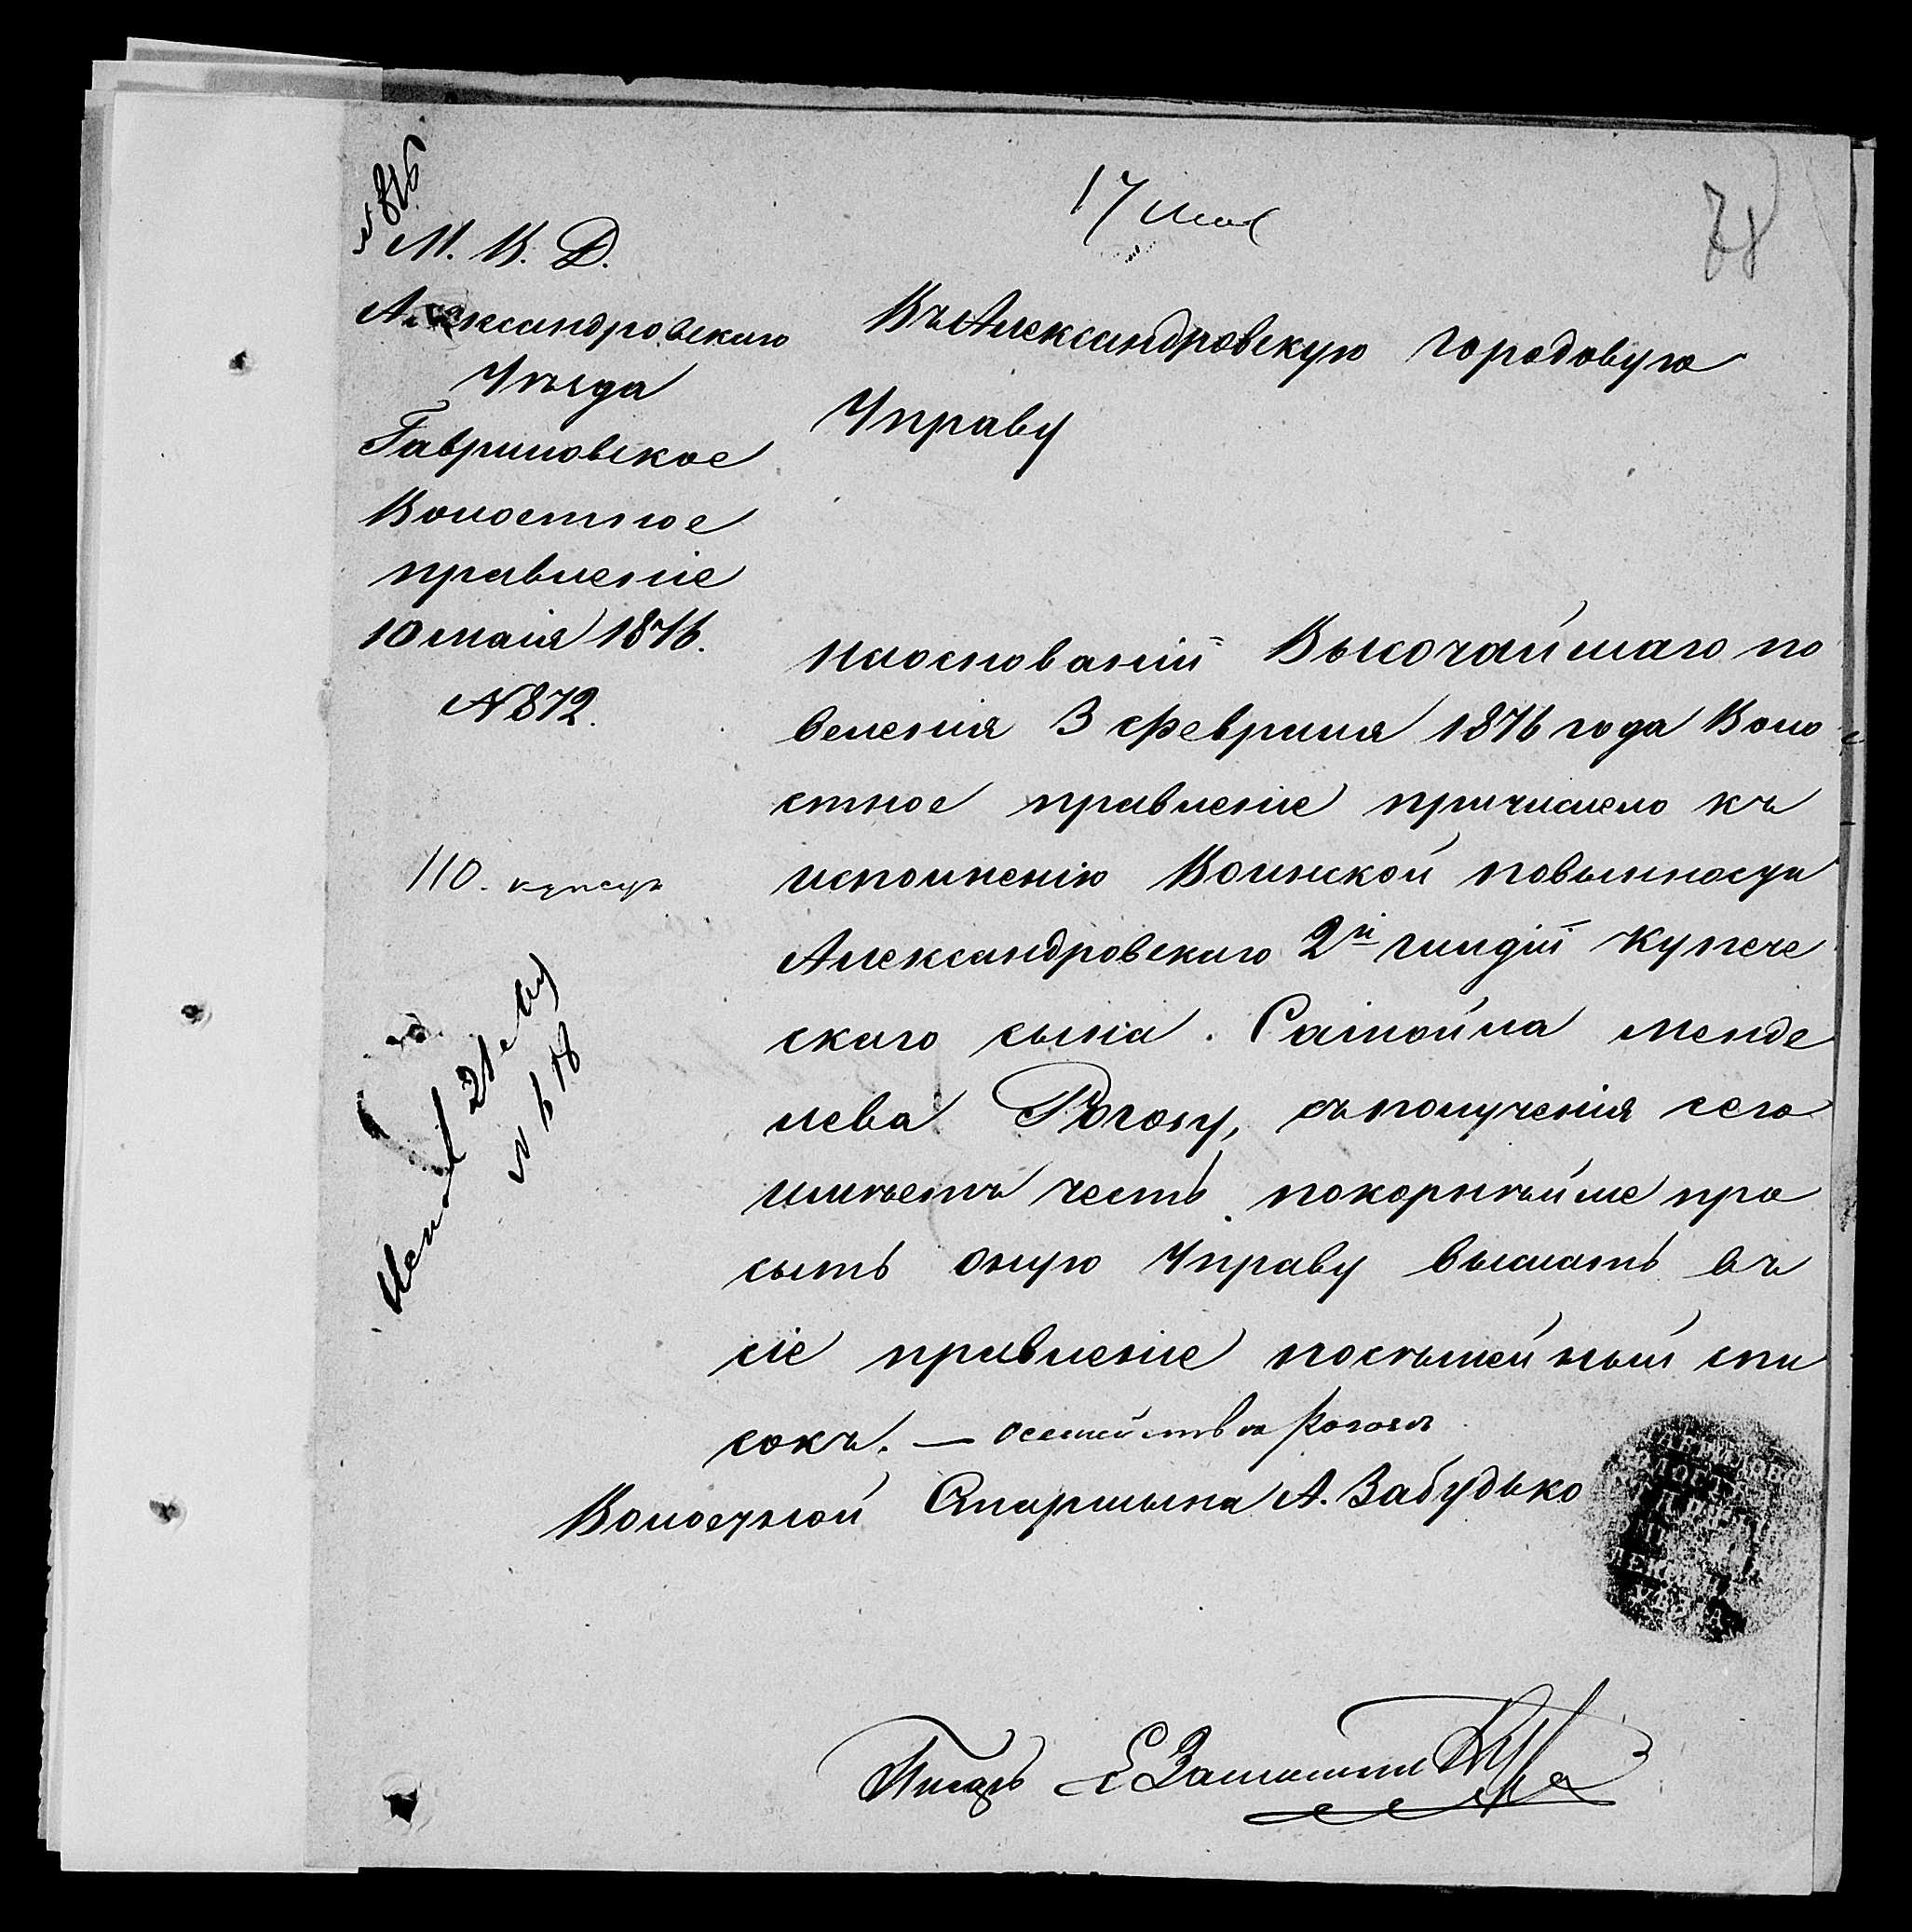 № 816
17 Мая
78
М. В. Д.
Александровскаго
Уѣзда
Гавриловское
Волостное
правленіе
10 маія 1876.
№ 872.
110. купецъ
21 мая
№ 618
Въ Александровскую городовую
Управу
На основаніи Высочайшаго по
веленія 3 февраля 1876 года Воло
стное правленіе причислело къ
исполненію Воинской повынности
Александровскаго 2й гилдіи Купече
скаго сына. Самойла Менде
лева Рогозу, съ полученія сего
имѣетъ честь покорнѣйше про
сыть оную Управу выслать въ
сіе правленіе посѣмейный спи
сокъ. — о семействѣ Рогозы
Волостной Старшына А. Забудько
Писарь Е